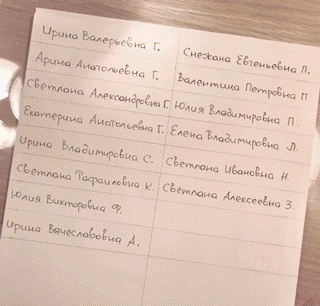 Ирина Валерьевна Г.
Арина Анатольевна Г.
Светлана Александровна Г.
Екатерина Анатольевна Г.
Ирина Владимировна С.
Светлана Рафаиловна К.
Юлия Викторовна Ф.
Ирина Вячеславовна А.
Снежана Евгеньевна П.
Валентина Петровна П.
Юлия Владимировна П.
Елена Владимировна Л.
Светлана Ивановна Н.
Светлана Алексеевна З.